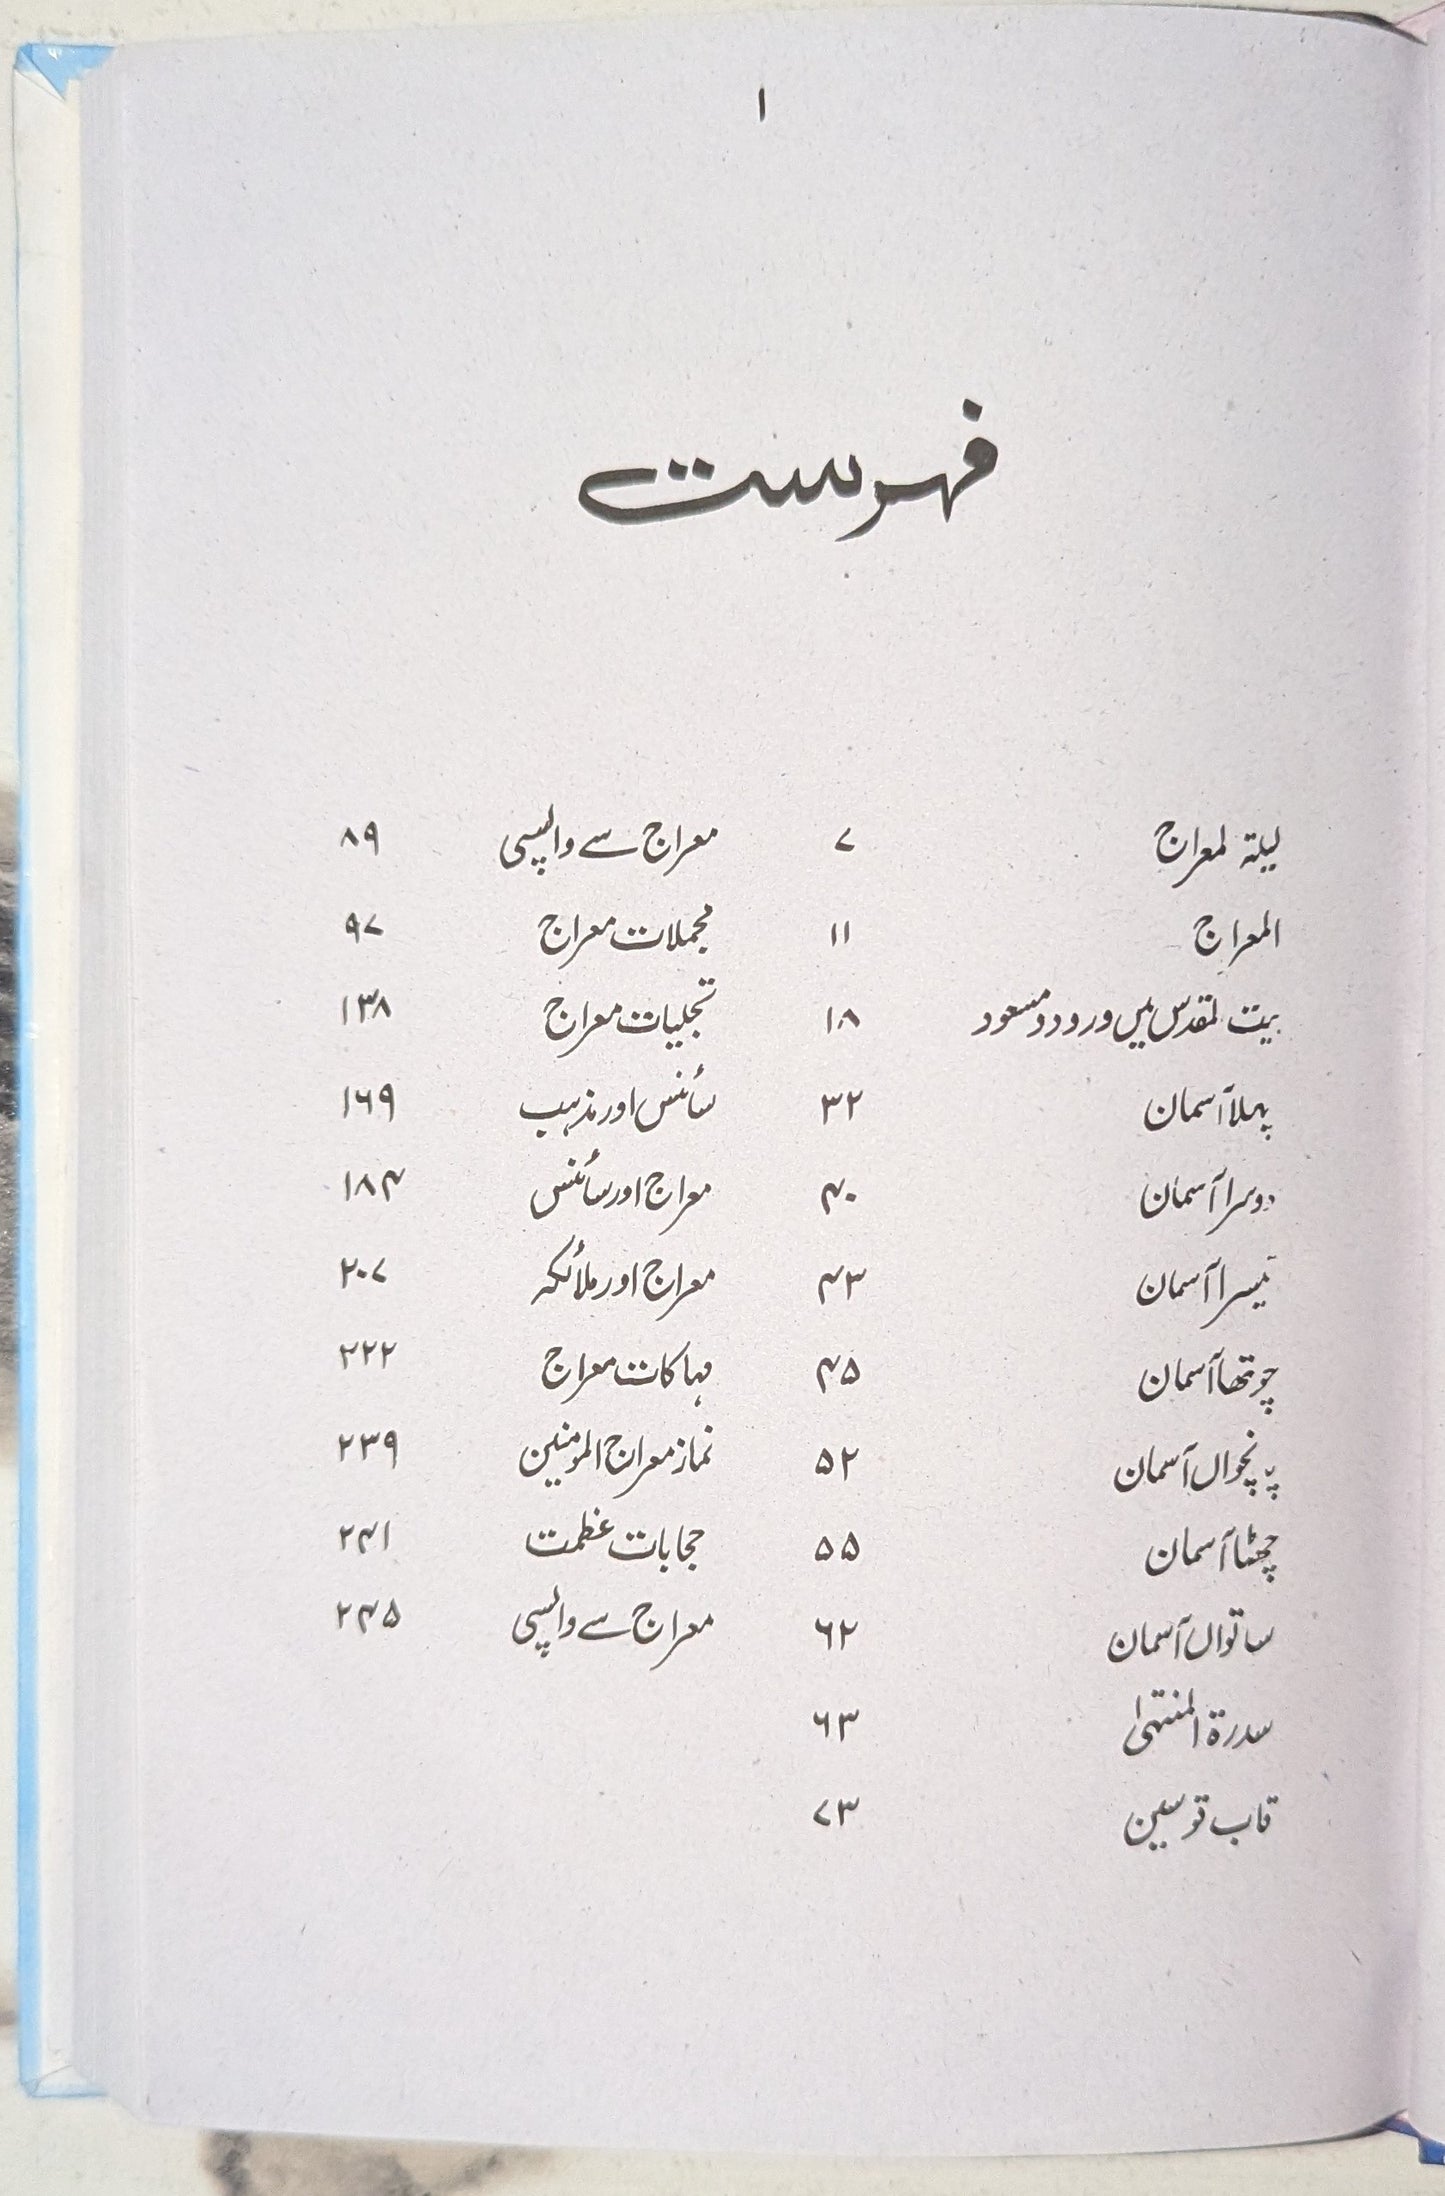 ۱
فہرست
لیلۃ لمعراج ۷
المعراج ۱۱
بیت لمقدس میں ورود مسعود ۱۸
پہلا آسمان ۳۲
دوسرا آسمان ۴۰
تیسرا آسمان ۴۳
چوتھا آسمان ۴۵
پانچواں آسمان ۵۲
چھٹا آسمان ۵۵
ساتواں آسمان ۶۲
سدرۃ المنتہیٰ ۶۳
قاب قوسین ۷۳
معراج سے واپسی ۸۹
مجملات معراج ۹۷
تجلیات معراج ۱۳۸
سائنس اور مذہب ۱۶۹
معراج اور سائنس ۱۸۴
معراج اور ملائکہ ۲۰۷
معراج ۲۲۲
نماز معراج المومنین ۲۳۹
حجابات عظمت ۲۴۱
معراج سے واپسی ۲۴۵